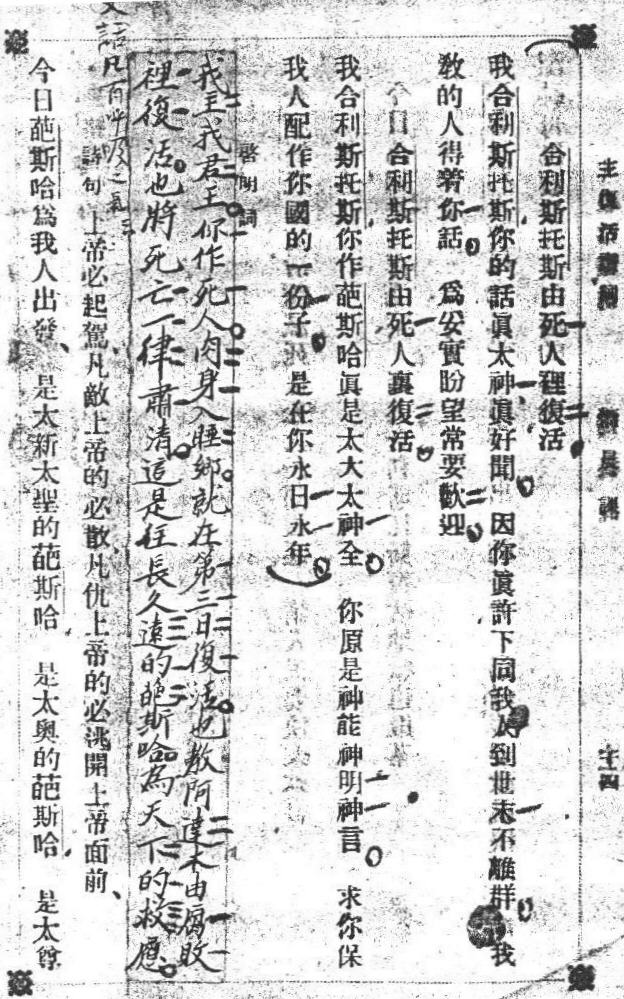 合利斯托斯由死人裡復活
我合利斯托斯你的話眞太神眞好聞 因你眞許下同我人到世末不離群 我
敎的人得着你話 爲妥實盼望常要歡迎
今日合利斯托斯由死人裏復活
我合利斯托斯你作葩斯哈眞是太大太神全 你原是神能神明神言 求你保
我人配作你國的一份子 是在你永日永年
啓明詞
我主我君王你作死人肉身入睡鄉。就在第三日復活也教阿達木由腐敗
裡復活。也將死亡一律肅清。這是往長久遠的葩斯哈為天下的救應。
凡有呼吸之氣
詩句 上帝必起駕凡敵上帝的必散、凡仇上帝的必逃開上帝面前、
今日葩斯哈爲我人出發、是太新太聖的葩斯哈、是太奧的葩斯哈、是太尊